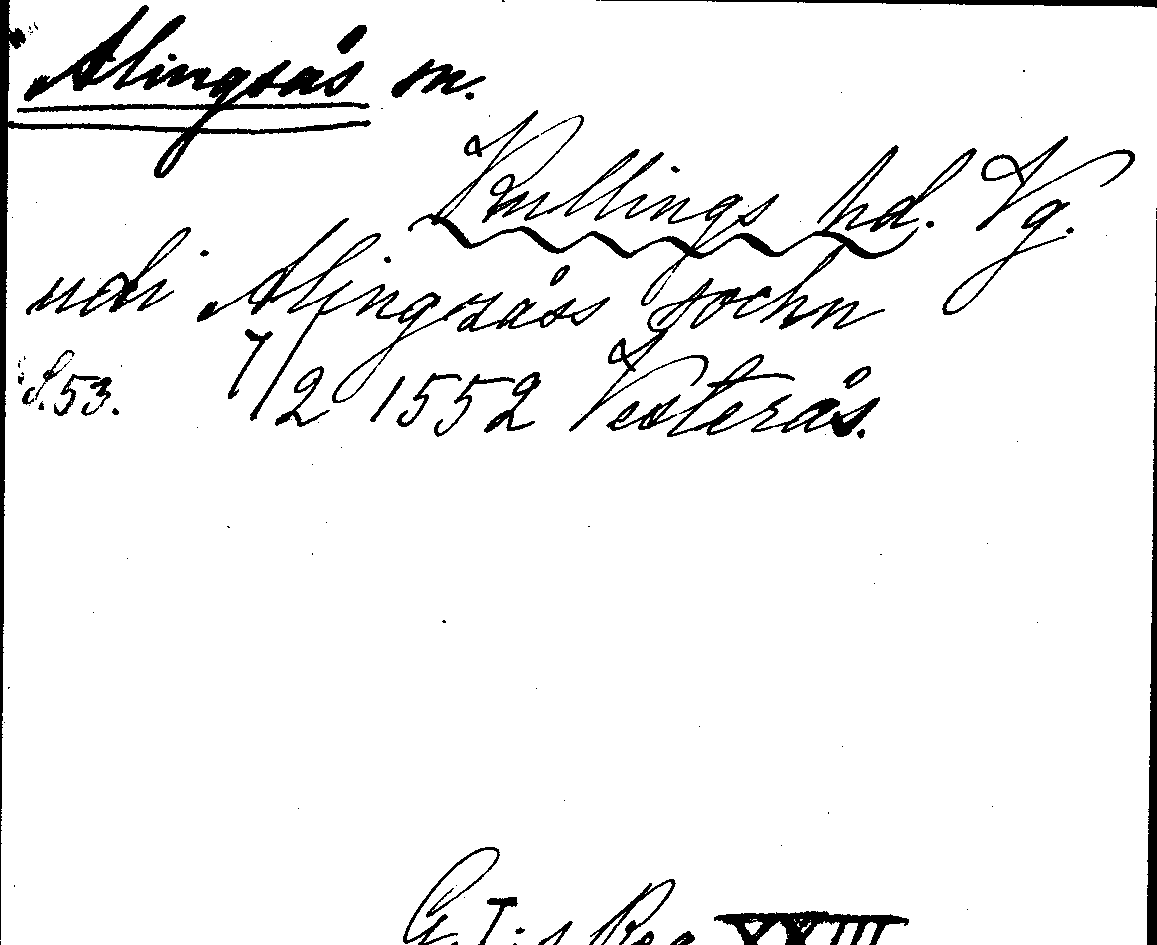 Alingsås sn.
Kullings hd. Vg.
udi Alingsåss sochn
S. 53. 7/2 1552 Vesterås.
G. I:s Reg XXIII